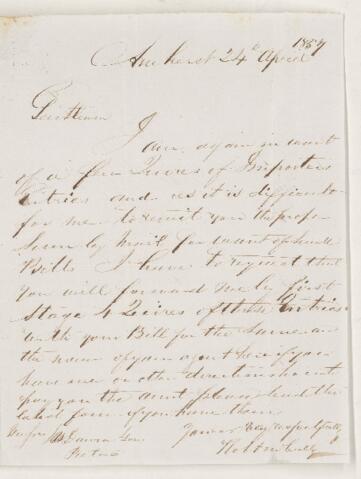 Amherst 24th April 1857
Gentlemen
I am again in want
of a few Quires of Importers
Entries and as it is difficult
for me to remit you the prope
Sum by mail for want of small
Bills I have to request that
you will forward me by first
Stage 4 Quires of these Entries
with your Bill for the Same and
the name of your agent here if you
have one or other direction
pay you the amt please send the
latest form if you have them
Yours Very respectfully